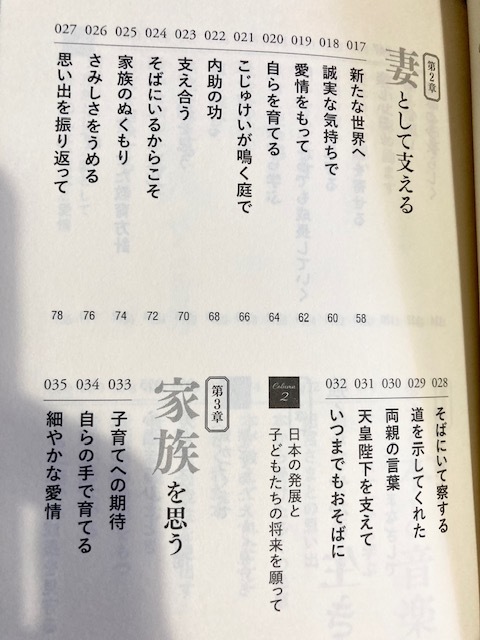 第2章
妻として支える
017 新たな世界へ 58
018 誠実な気持ちで 60
019 愛情をもって 62
020 自らを育てる 64
021 こじゅけいが鳴く庭で 66
022 内助の功 68
023 支え合う 70
024 そばにいるからこそ 72
025 家族のぬくもり 74
026 さみしさをうめる 76
027 思い出を振り返って 78
028 そばにいて察する
029 道を示してくれた
030 両親の言葉
031 天皇陛下を支えて
032 いつまでもおそばに
Column 2
日本の発展と
子どもたちの将来を願って
第3章
家族を思う
033 子育てへの期待
034 自らの手で育てる
035 細やかな愛情